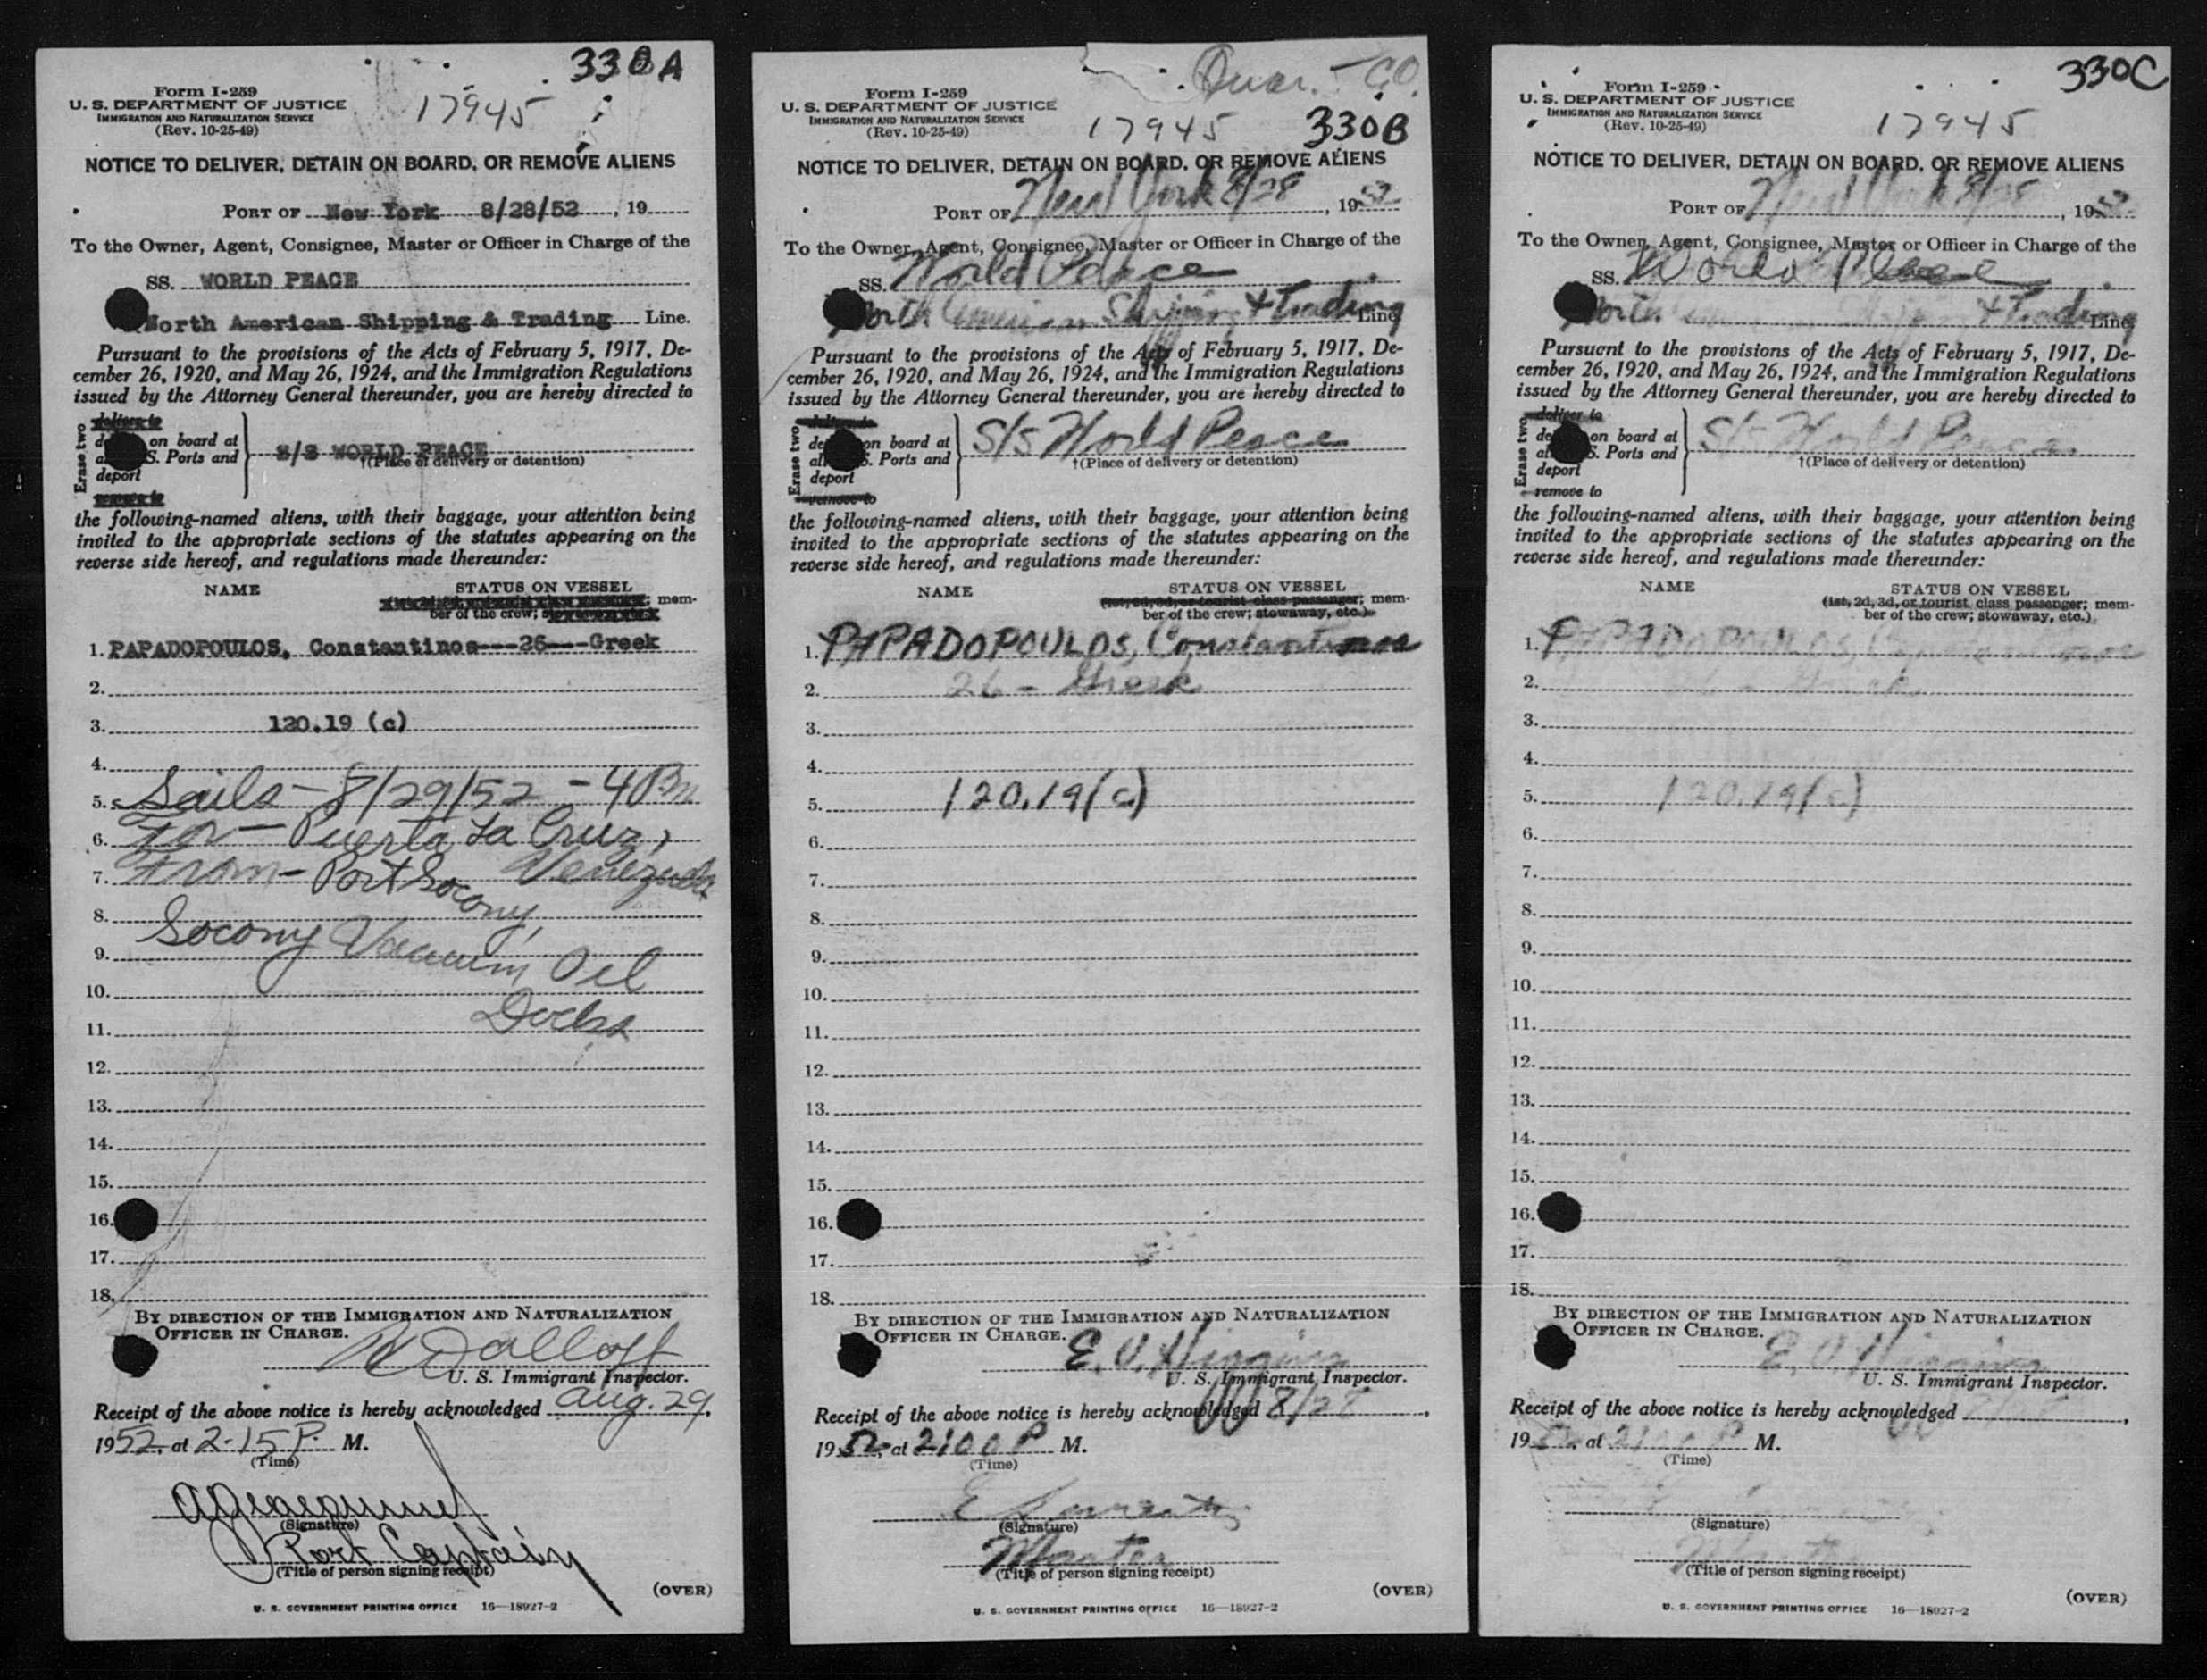 330A
Form I-259
U. S. DEPARTMENT OF JUSTICE
IMMIGRATION AND NATURALIZATION SERVICE
(Rev. 10-25-49)
17945
NOTICE TO DELIVER, DETAIN ON BOARD, OR REMOVE ALIENS
PORT OF New York 8/28/52, 19
To the Owner, Agent, Consignee, Master or Officer in Charge of the
SS. WORLD PEACE
North American Shipping & Trading Line.
Pursuant to the provisions of the Acts of February 5, 1917, De-
cember 26, 1920, and May 26, 1924, and the Immigration Regulations
issued by the Attorney General thereunder, you are hereby directed to
Erase two
deliver to
on board at
S. Ports and
deport
remove to
S/S WORLD PEACE
†(Place of delivery or detention)
the following-named aliens, with their baggage, your attention being
invited to the appropriate sections of the statutes appearing on the
reverse side hereof, and regulations made thereunder:
NAME STATUS ON VESSEL
mem-
ber of the crew;
1. PAPADOPOULOS, Constantinos---26---Greek
2.
3. 120.19 (c)
4.
5. Sails - 8/29/52 - 4 Pm
6. for - Puerta La Cruz,
7. from - Port Socony, Venezuela
8.
9. Socony Vacuum Oil
10.
11. Docks
12.
13.
14.
15.
16.
17.
18.
BY DIRECTION OF THE IMMIGRATION AND NATURALIZATION
OFFICER IN CHARGE.
U. S. Immigrant Inspector.
Receipt of the above notice is hereby acknowledged Aug. 29,
1952, at 2-15 P. M.
(Time)
(Signature)
Port Captain
(Title of person signing receipt)
(OVER)
U. S. GOVERNMENT PRINTING OFFICE 16—18927-2
Quar. - CO.
Form I-259
U. S. DEPARTMENT OF JUSTICE
IMMIGRATION AND NATURALIZATION SERVICE
(Rev. 10-25-49)
17945 330B
NOTICE TO DELIVER, DETAIN ON BOARD, OR REMOVE ALIENS
PORT OF New York 8/28, 1952
To the Owner, Agent, Consignee, Master or Officer in Charge of the
SS. World Peace
North American Shipping & Trading Line
Pursuant to the provisions of the Acts of February 5, 1917, De-
cember 26, 1920, and May 26, 1924, and the Immigration Regulations
issued by the Attorney General thereunder, you are hereby directed to
Erase two
deliver to
on board at
S. Ports and
deport
remove to
S/S World Peace
†(Place of delivery or detention)
the following-named aliens, with their baggage, your attention being
invited to the appropriate sections of the statutes appearing on the
reverse side hereof, and regulations made thereunder:
NAME STATUS ON VESSEL
(1st, 2d, 3d, or tourist class passenger; mem-
ber of the crew; stowaway, etc.)
1. PAPADOPOULOS, Constantinos
2. 26 - Greek
3.
4.
5. 120.19(c)
6.
7.
8.
9.
10.
11.
12.
13.
14.
15.
16.
17.
18.
BY DIRECTION OF THE IMMIGRATION AND NATURALIZATION
OFFICER IN CHARGE.
E. V. Higgins
U. S. Immigrant Inspector.
Receipt of the above notice is hereby acknowledged 8/28,
1952, at 2100 P M.
(Time)
(Signature)
Master
(Title of person signing receipt)
(OVER)
U. S. GOVERNMENT PRINTING OFFICE 16—18927-2
330C
Form I-259
U. S. DEPARTMENT OF JUSTICE
IMMIGRATION AND NATURALIZATION SERVICE
(Rev. 10-25-49)
17945
NOTICE TO DELIVER, DETAIN ON BOARD, OR REMOVE ALIENS
PORT OF New York 8/28, 1952
To the Owner, Agent, Consignee, Master or Officer in Charge of the
SS. World Peace
North & Trading Line
Pursuant to the provisions of the Acts of February 5, 1917, De-
cember 26, 1920, and May 26, 1924, and the Immigration Regulations
issued by the Attorney General thereunder, you are hereby directed to
Erase two
deliver to
on board at
S. Ports and
deport
remove to
S/S World Peace
†(Place of delivery or detention)
the following-named aliens, with their baggage, your attention being
invited to the appropriate sections of the statutes appearing on the
reverse side hereof, and regulations made thereunder:
NAME STATUS ON VESSEL
(1st, 2d, 3d, or tourist class passenger; mem-
ber of the crew; stowaway, etc.)
1. PAPADOPOULOS, Constantinos
2. 26 - Greek
3.
4.
5. 120.19(c)
6.
7.
8.
9.
10.
11.
12.
13.
14.
15.
16.
17.
18.
BY DIRECTION OF THE IMMIGRATION AND NATURALIZATION
OFFICER IN CHARGE.
E. V. Higgins
U. S. Immigrant Inspector.
Receipt of the above notice is hereby acknowledged
1952, at 2100 P M.
(Time)
(Signature)
Master
(Title of person signing receipt)
(OVER)
U. S. GOVERNMENT PRINTING OFFICE 16—18927-2